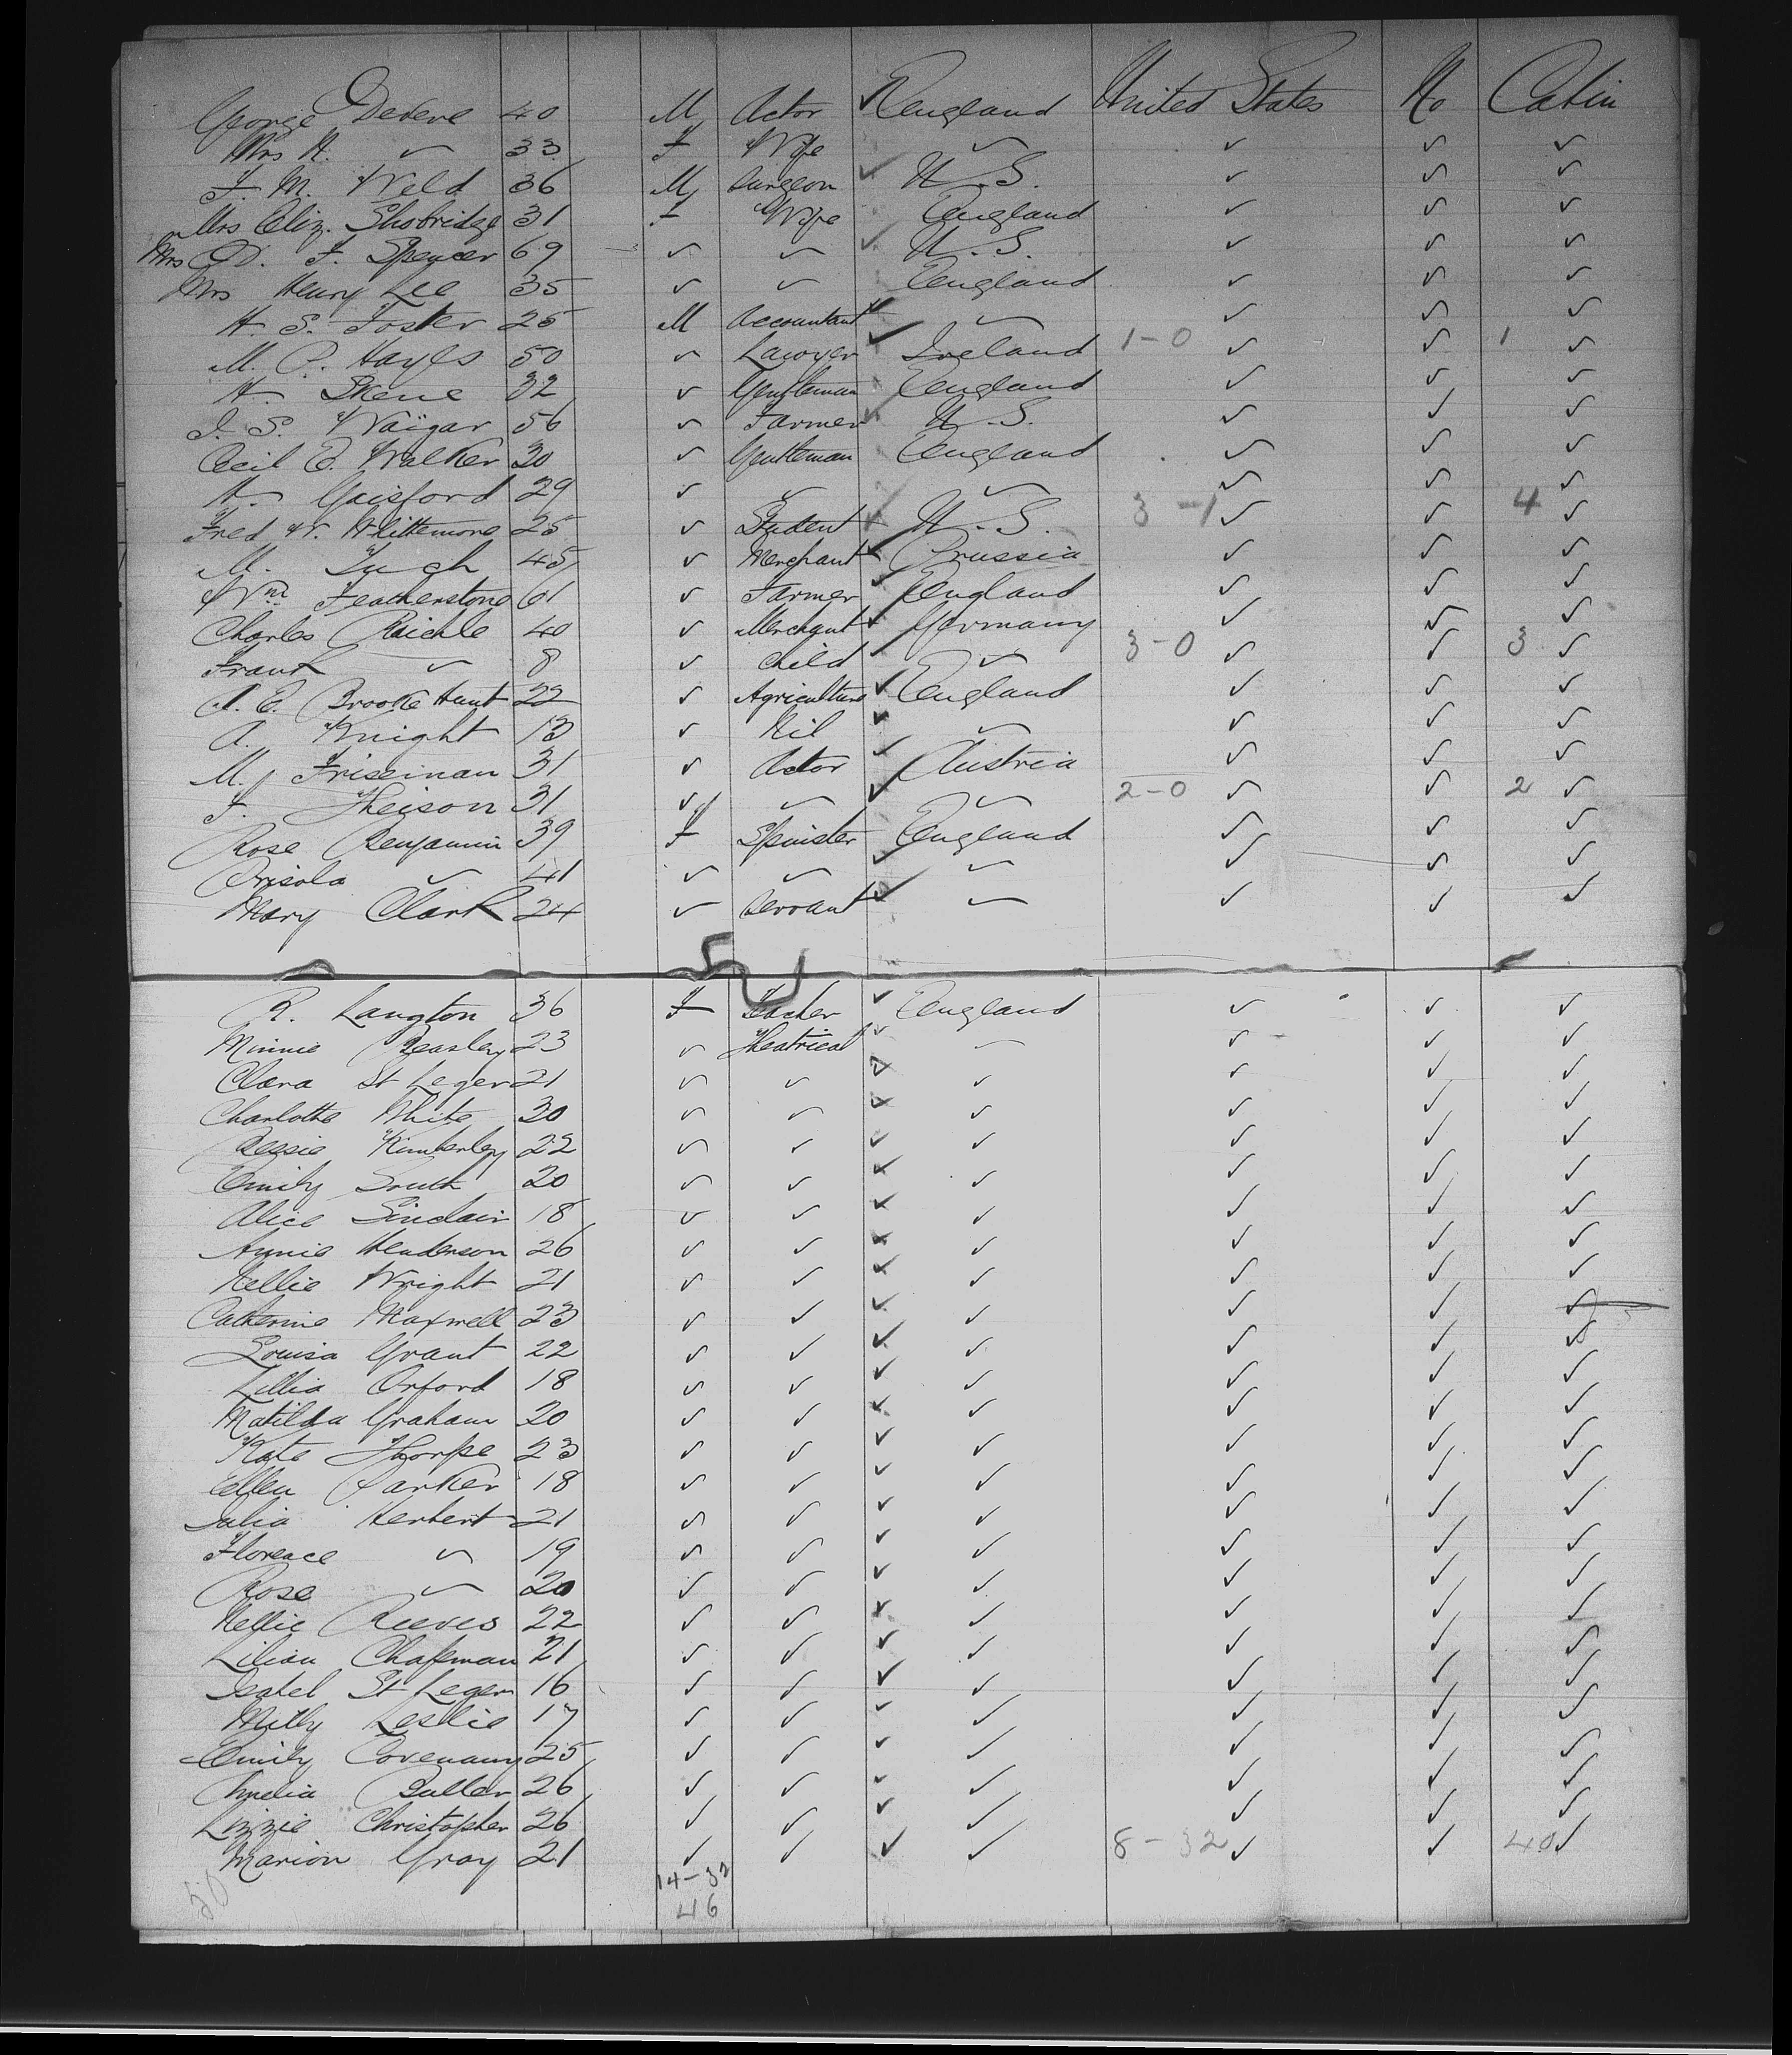 George Devere 40 M Actor England United States No Cabin
Mrs H. " 33 F Wife " " " "
F. M. Weld 36 M Surgeon U.S. " " "
Mrs Eliz. Shobridge 31 F Wife England " " "
Mrs D. F. Spencer 69 " " U.S. " " "
Mrs Henry Lee 35 " " England " " "
H. S. Foster 25 M Accountant " " " "
M. P. Hayes 50 " Lawyer Ireland 1-0 " " 1 "
H. Skene 32 " Gentleman England " " "
I. S. Waigar 56 " Farmer U.S. " " "
Cecil E. Walker 30 " Gentleman England " " "
H. Gaisford 29 " " " " " "
Fred W. Whittemore 25 " Student U.S. 3-1 " " 4 "
M. 45 " Merchant Prussia " " "
Wm Featherstone 61 " Farmer England " " "
Charles Raichle 40 " Merchant Germany " " "
Frank " 8 " Child " 3-0 " " 3 "
A. E. Brooke Hunt 22 " Agriculture England " " "
A. Knight 13 " Nil " " " "
M. Friseman 31 " Actor Austria " " "
F. Theison 31 " " " 2-0 " " 2 "
Rose Benjamin 39 F Spinster England " " "
Prisola " 41 " " " " " "
Mary Clark 24 " Servant " " " "
R. Langton 36 F Teacher England " " "
Minnie Beasley 23 " Theatrical " " " "
Clara St Leger 21 " " " " " "
Charlotte White 30 " " " " " "
Bessie Kimberley 22 " " " " " "
Emily South 20 " " " " " "
Alice Sinclair 18 " " " " " "
Annie Henderson 26 " " " " " "
Nellie Wright 21 " " " " " "
Catherine Maxwell 23 " " " " " "
Louisa Grant 22 " " " " " "
Lillia Orford 18 " " " " " "
Matilda Graham 20 " " " " " "
Kate Thorpe 23 " " " " " "
Ellen Parker 18 " " " " " "
Julia Herbert 21 " " " " " "
Florence " 19 " " " " " "
Rose " 20 " " " " " "
Nellie Reeves 22 " " " " " "
Lilian Chapman 21 " " " " " "
Isabel St Leger 16 " " " " " "
Milly Leslie 17 " " " " " "
Emily Covenany 25 " " " " " "
Amelia Butler 26 " " " " " "
Lizzie Christopher 26 " " " " " "
Marion Gray 21 " " " 8-32 " " 40 "
50 14-32
46